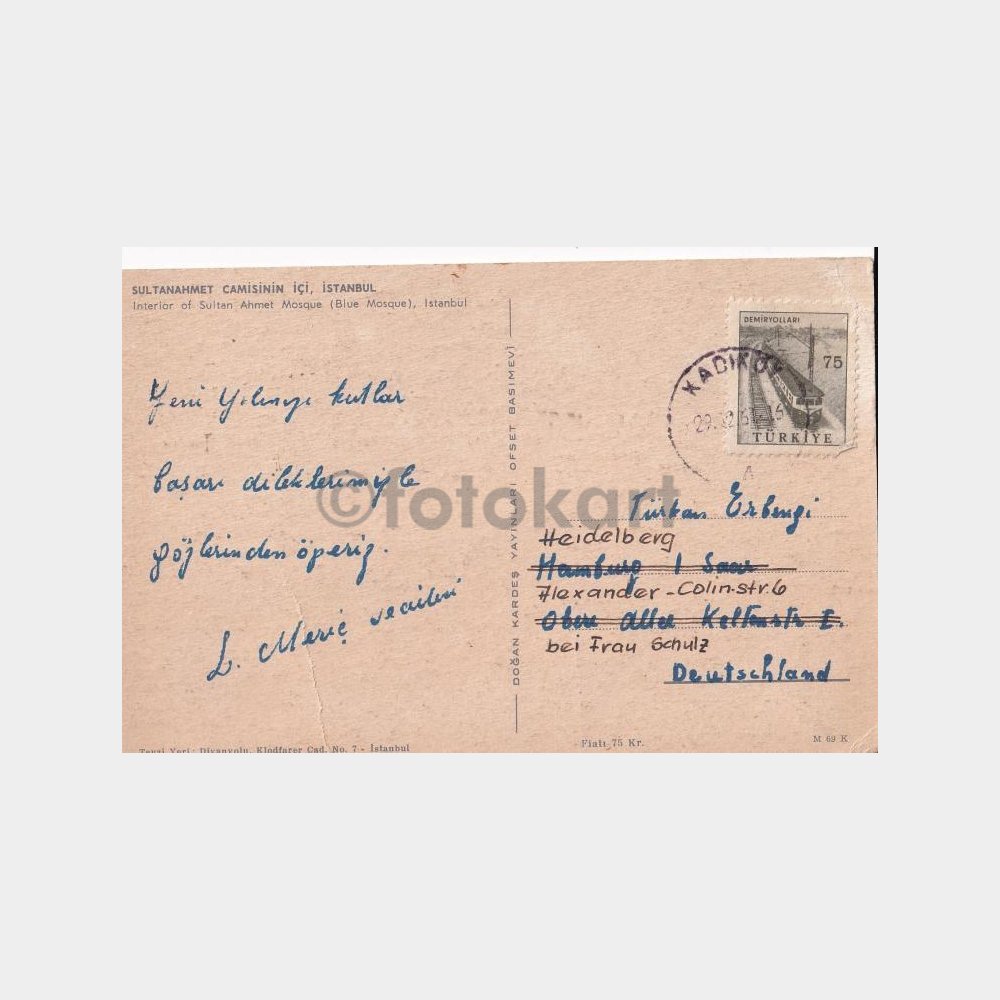 SULTANAHMET CAMİSİNİN İÇİ, İSTANBUL
Interior of Sultan Ahmet Mosque (Blue Mosque), Istanbul
Yeni Yılınızı kutlar
başarı dileklerimizle
gözlerinden öperiz.
L. Meriç ve ailesi
DOĞAN KARDEŞ YAYINLARI OFSET BASIMEVİ
DEMİRYOLLARI
75
TÜRKİYE
KADIKÖY
©fotokart
Türkan Erbengi
Heidelberg
Hamburg / Saar
Alexander-Colin-str.6
Obere Allee
bei Frau Schulz
Deutschland
Tevzi Yeri: Divanyolu, Klodfarer Cad. No. 7 - İstanbul
Fiatı 75 Kr.
M 69 K